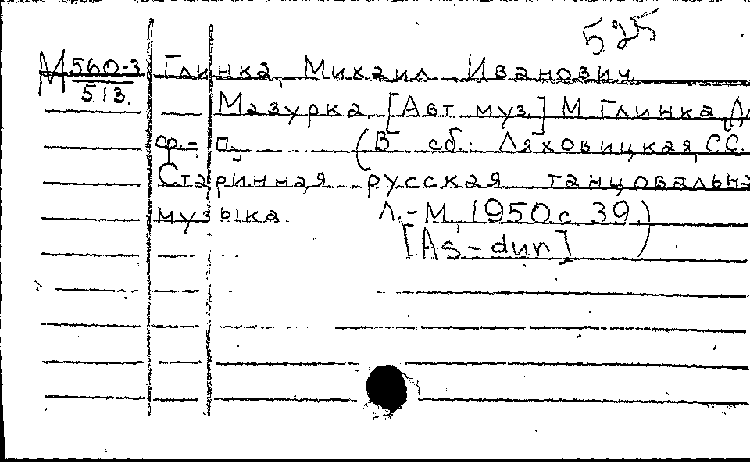 525
М 560-3 Глинка, Михаил Иванович
513.
Мазурка [Авт. муз.] М. Глинка Дл
ф.-п. (В сб.: Ляховицкая, С.С.
Старинная русская танцовальна
музыка. Л.-М., 1950. с 39.)
[As-dur]